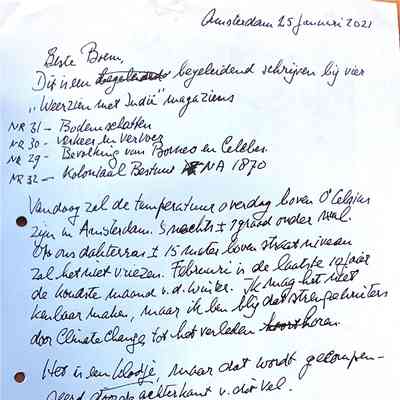 Amsterdam 25 januari 2021
Beste Boem,
Dit is een begeleidend schrijven bij vier
"Weerzien met Indië" magaziens
NR 31 - Bodemschatten
NR 30 - Verkeer en Vervoer
NR 29 - Bevolking van Borneo en Celebes.
NR 32 - Koloniaal Bestuur NA 1870
Vandaag zal de temperatuur overdag boven 0° Celsius
zijn in Amsterdam. 's nachts ± 1 graad onder nul.
Op ons dakterras ± 15 meter boven straat niveau
zal het niet vriezen. Februari is de laatste 10 jaar
de koudste maand v.d. winter. Ik mag het niet
kenbaar maken, maar ik ben blij dat strenge winters
door Climate Change tot het verleden horen.
Het is een kladje, maar dat wordt gecompen-
seerd door de achterkant v. d.